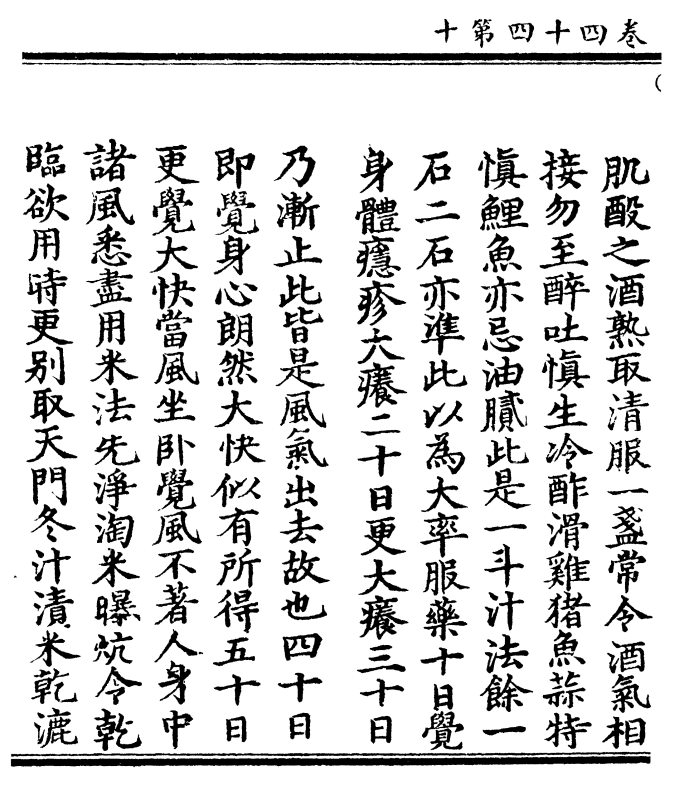 卷四十四第十
肌酘之酒熟取清服一盞常令酒氣相
接勿至醉吐慎生冷酢滑雞猪魚蒜特
慎鯉魚亦忌油膩此是一斗汁法餘一
石二石亦準此以為大率服藥十日覺
身體癮疹大癢二十日更大癢三十日
乃漸止此皆是風氣出去故也四十日
即覺身心朗然大快似有所得五十日
更覺大快當風坐卧覺風不著人身中
諸風悉盡用米法先淨淘米曝炕令乾
臨欲用時更别取天門冬汁漬米乾漉